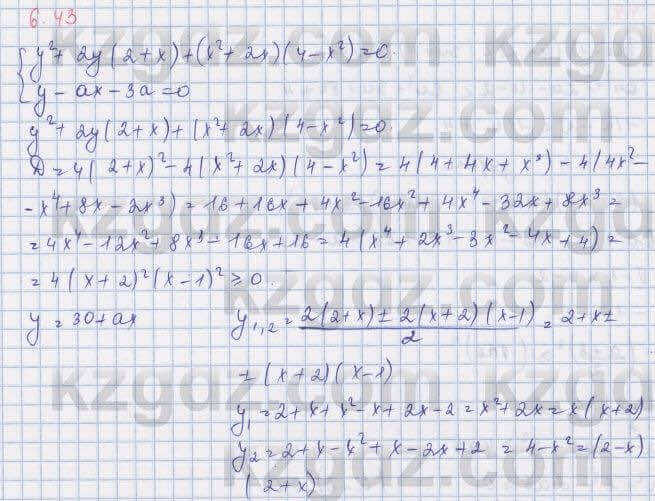 6.43
{ y² + 2y(2+x) + (x²+2x)(4-x²) = 0.
y - ax - 3a = 0
y² + 2y(2+x) + (x²+2x)(4-x²) = 0.
D = 4(2+x)² - 4(x²+2x)(4-x²) = 4(4+4x+x²) - 4(4x²-
-x⁴+8x-2x³) = 16+16x+4x²-16x²+4x⁴-32x+8x³ =
= 4x⁴-12x²+8x³-16x+16 = 4(x⁴+2x³-3x²-4x+4) =
= 4(x+2)²(x-1)² ≥ 0.
y = 3a+ax y₁,₂ = 2(2+x) ± 2(x+2)(x-1) / 2 = 2+x±
± (x+2)(x-1)
y₁ = 2+x+x²-x+2x-2 = x²+2x = x(x+2)
y₂ = 2+x-x²+x-2x+2 = 4-x² = (2-x)
(2+x)
kzgdz.com